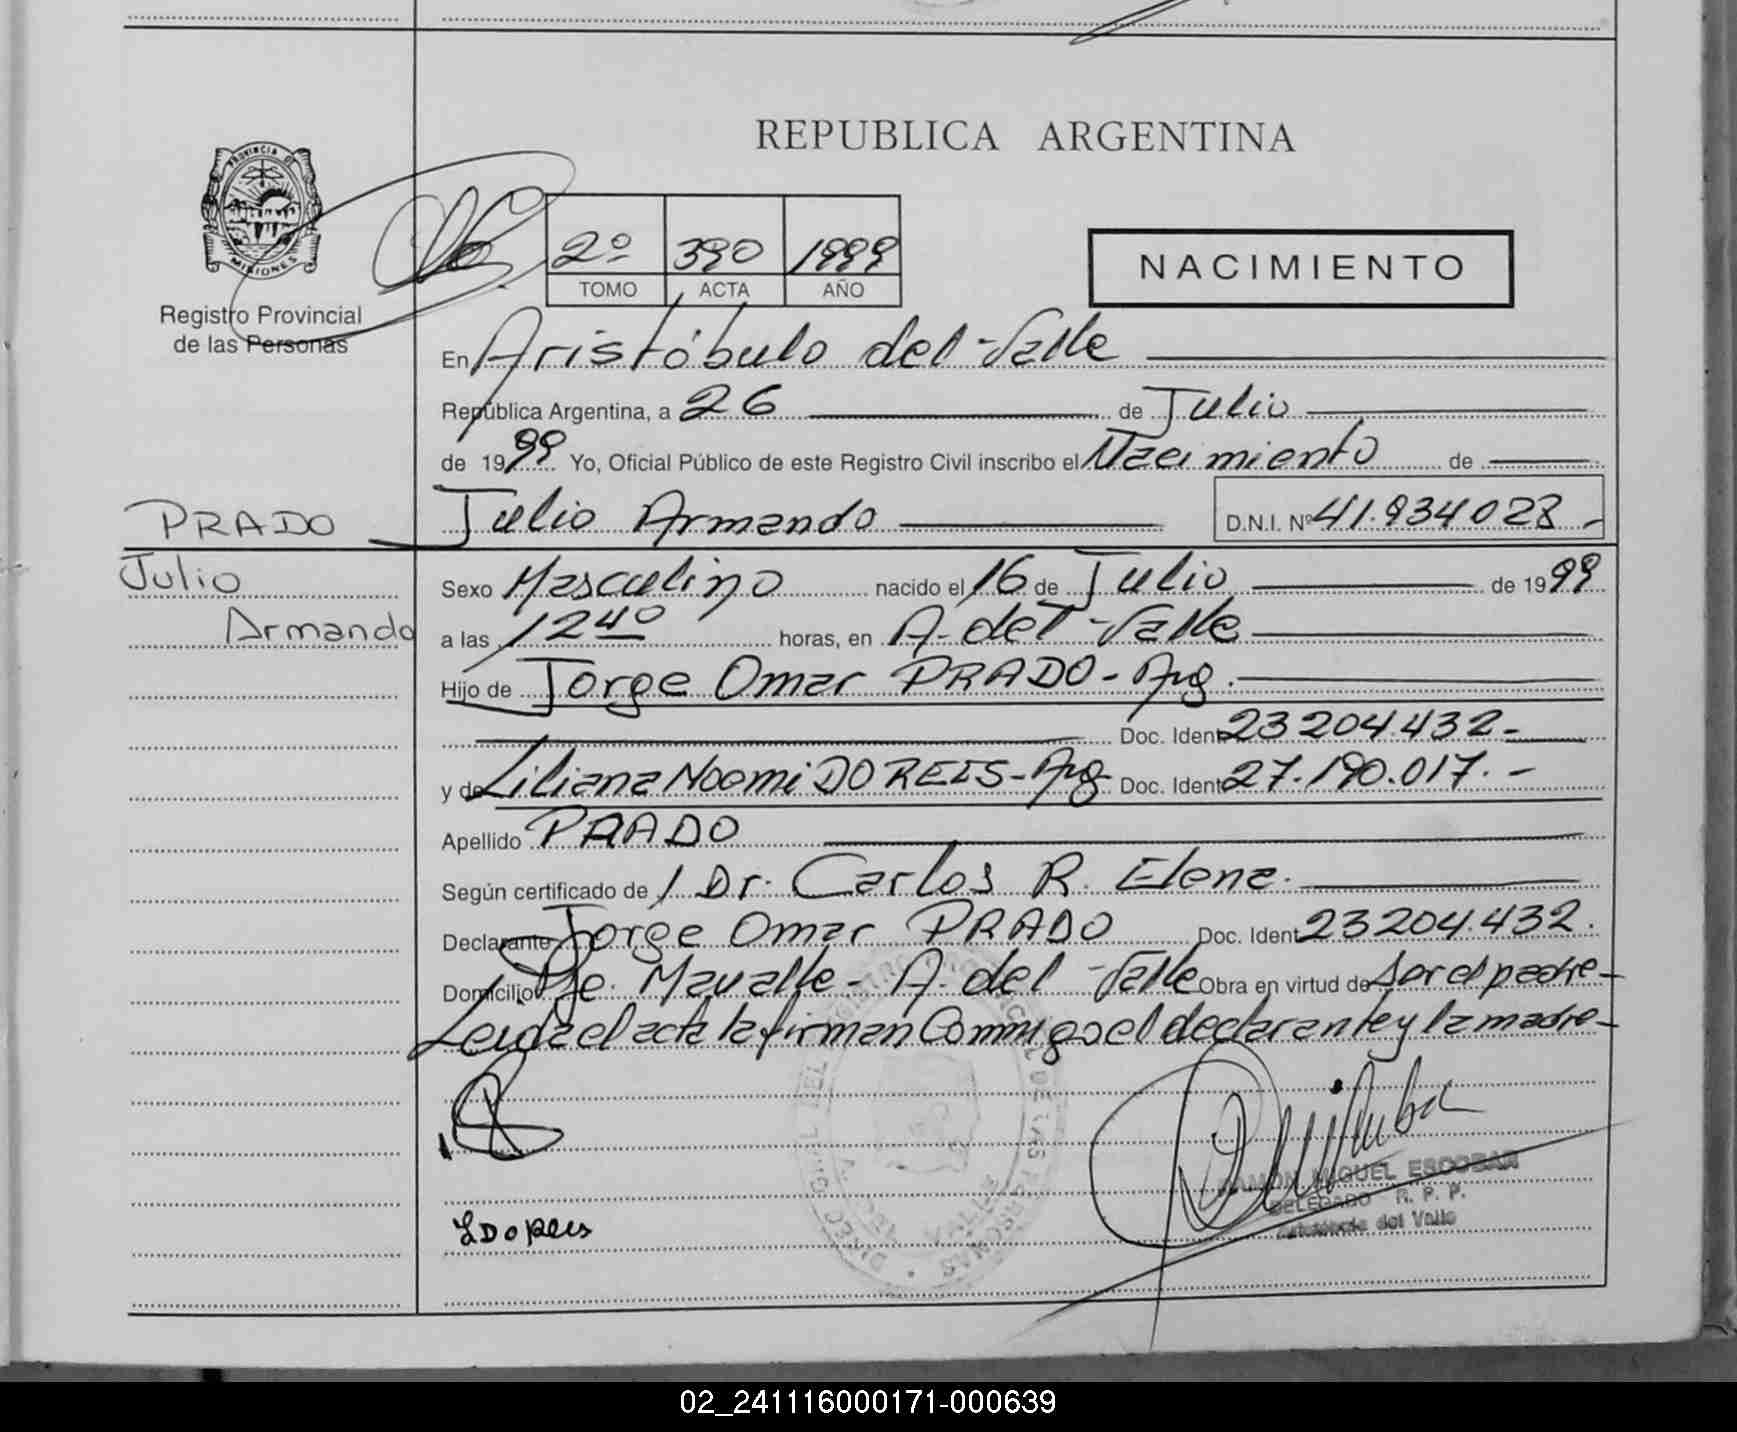 REPUBLICA ARGENTINA
PROVINCIA DE MISIONES
Registro Provincial
de las Personas
2º 390 1999
TOMO ACTA AÑO
NACIMIENTO
En Aristóbulo del Valle
República Argentina, a 26 de Julio
de 1999 Yo, Oficial Público de este Registro Civil inscribo el Nacimiento de
PRADO Julio Armando D.N.I. Nº 41.934028-
Julio
Armando
Sexo Masculino nacido el 16 de Julio de 1999
a las 12 40 horas, en A. del Valle
Hijo de Jorge Omar PRADO-Arg.
Doc. Ident 23204.432-
y de Liliana Noemi DO REIS-Arg Doc. Ident 27.190.017.-
Apellido PRADO
Según certificado de Dr. Carlos R. Elena.
Declarante Jorge Omar PRADO Doc. Ident 23204.432.
Domicilio Pje. A. del Valle Obra en virtud de Ser el padre-
Leida el acta la firman Conmigo el declarante y la madre-
L DO Reis
RAMON MIGUEL ESCOBAR
DELEGADO R. P. P.
Aristóbulo del Valle
02_241116000171-000639